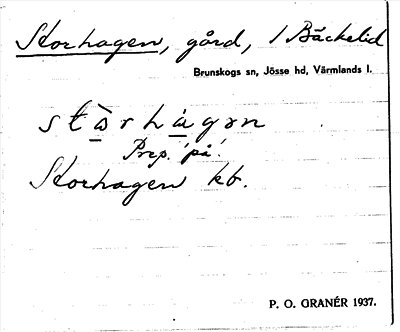 Storhagen, gård, / Bäckelid
Brunskogs sn, Jösse hd, Värmlands l.
stàrhágən
Prep. 'på'.
Storhagen kb.
P. O. GRANÉR 1937.